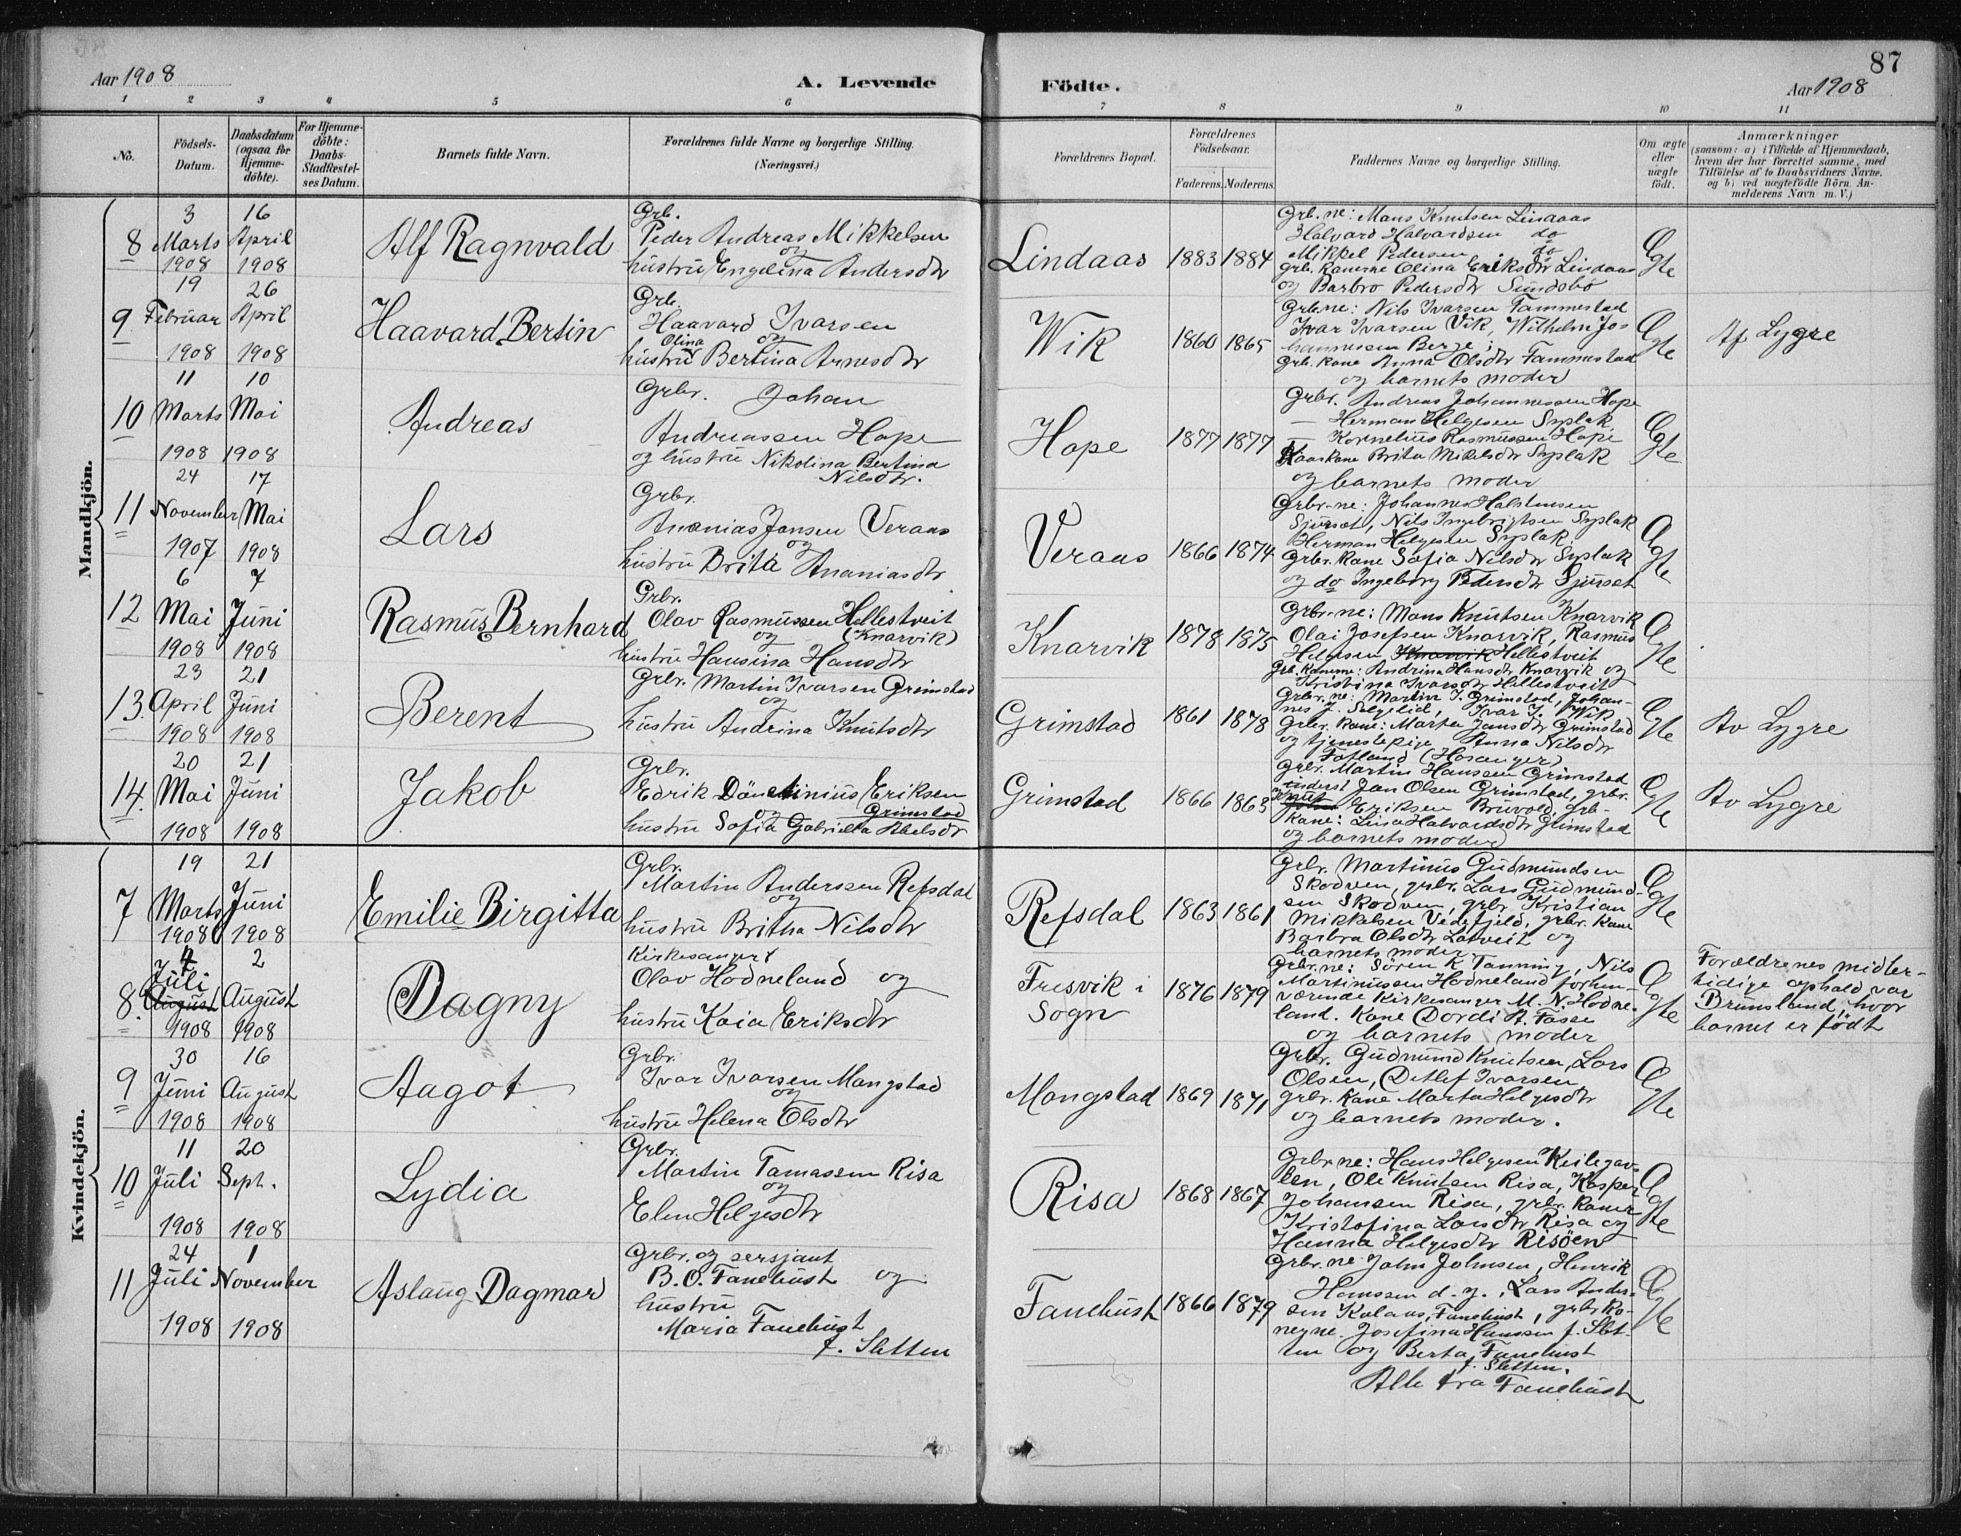 87
Aar 1908
A. Levende
Födte.
Aar 1908
1 2 3 4 5 6 7 8 9 10 11
No.
Födsels-Datum.
Daabsdatum (ogsaa for Hjemme-döbte).
For Hjemme-döbte: Daabs-Stadfæstel-ses Datum.
Barnets fulde Navn.
Forældrenes fulde Navne og borgerlige Stilling. (Næringsvei.)
Forældrenes Bopæl.
Forældrenes Födselsaar.
Faderens. Moderens.
Faddernes Navne og borgerlige Stilling.
Om ægte eller uægte födt.
Anmærkninger
(saasom: a) i Tilfælde af Hjemmedaab,
hvem der har forrettet samme, med
Tilföielse af to Daabsvidners Navne.
og b) ved uægtefödte Börn, An-
melderens Navn m. V.)
Mandkjön.
8
3 Marts 1908
16 April 1908
Alf Ragnvald
Grb.
Peder Andreas Mikkelsen
og
hustru Engelina Andersdtr
Lindaas
1883 1884
Grb.ne: Mons Knutsen Lindaas
Halvard Halvardsen do
Mikkel Pedersen do
grb. konerne Olina Eriksdtr Lindaas
og Barbro Pedersdtr Sundsbö
Ægte
9
19 Februar 1908
26 April 1908
Haavard Bertin
Grb.
Haavard Ivarsen
Olina og
hustru Bertina Arnesdtr
Wik
1860 1865
Grb.ne: Nils Ivarsen Fammestad
Ivar Ivarsen Vik, Wilhelm Jo-
hannesen Berge;
Grb. Kone Anna Olsdtr Fammestad
og barnets moder
Ægte
Af Lygre
10
11 Marts 1908
10 Mai 1908
Andreas
Grbr. Johan
Andreassen Hope
og hustru Nikolina Bertina
Nilsdtr.
Hope
1877 1877
Grbr. Andreas Johannessen Hope
— Herman Helgesen Syslak
— Kornelius Rasmussen Hope
Kaarkone Brita Mikelsdtr Syslak
og barnets moder
Ægte
11
24 November 1907
17 Mai 1908
Lars
Grbr.
Ananias Jansen Veraas
og
hustru Brita Ananiasdtr
Veraas
1866 1874
Grbr-ne: Johannes Halstensen
Sjurset, Nils Ingebrigtsen Syslak
Herman Helgesen Syslak,
Grbr. Kone Sofia Nilsdtr Syslak
og do Ingeborg Pedersdtr Sjurset
Ægte
12
6 Mai 1908
7 Juni 1908
Rasmus Bernhard
Grbr.
Olav Rasmussen Hellestveit
og (Knarvik)
hustru Hansina Hansdtr
Knarvik
1878 1875
Grbr-ne: Mons Knutsen Knarvik
Olai Josefsen Knarvik, Rasmus
Helgesen Knarvik Hellestveit
Grb. Konene: Andrina Hansdtr Knarvik og
Kristina Ivarsdtr Hellestveit
Ægte
13.
23 April 1908
21 Juni 1908
Berent
Grbr. Martin Ivarsen Grimstad
og
hustru Andrina Knutsdtr
Grimstad
1861 1878
Grbr.ne: Martin J. Grimstad, Johan-
nes J. Selgelid, Ivar J. Wik
Grbr. Kone: Marta Jansdtr Grimstad
og tjenestepige Anna Nilsdtr
Fotland (Hosanger)
Ægte
Av Lygre
14.
20 Mai 1908
21 Juni 1908
Jakob
Grbr.
Edrik Eriksen
og Grimstad
hustru Sofia Gabriella Abelsdtr
Grimstad
1866 1863
Grbr. Martin Hanssen Grimstad
Jan Olsen Grimstad, grbr.
Knut Eriksen Bruvold, grb-
Kone: Lisa Halvardsdtr Grimstad
og barnets moder
Ægte
Av Lygre
Kvindekjön.
7
19 Marts 1908
21 Juni 1908
Emilie Birgitta
Grbr.
Martin Anderssen Refsdal
og
hustru Britha Nilsdtr
Refsdal
1863 1861
Grbr. Martinus Gudmundsen
Skodven, grbr. Lars Gudmund-
sen Skodven, grbr. Kristian
Mikkelsen Vedefjeld, grbr. Kone
Barbra Olsdtr Lotveit og
barnets moder
Ægte
8.
4 Juli August 1908
2 August 1908
Dagny
Kirkesanger
Olav Hodneland og
hustru Kaia Eriksdtr
Fresvik i
Sogn
1876 1879
Grbr.ne: Sören K Tanning, Nils
Martinussen Hodneland forhen-
værende Kirkesanger M. N. Hodne-
land. Kone Dordi A. Fosse
og barnets moder
Ægte
Forældrenes midler-
tidige ophald var
Brunsland, hvor
barnet er födt
9
30 Juni 1908
16 August 1908
Aagot
Grbr.
Ivar Ivarsen Mongstad
og
hustru Helena Olsdtr
Mongstad
1869 1871
Grbr. Gudmund Knutsen, Lars
Olsen, Detlef Ivarsen
grbr. Kone Marta Helgesdtr
og barnets moder.
Ægte
10
11 Juli 1908
20 Sept. 1908
Lydia
Grbr.
Martin Tomassen Risa
og
Elen Helgesdtr
Risa
1868 1867
Grbr-ne: Hans Helgesen Keilegav-
len, Ole Knutsen Risa, Kasper
Johansen Risa, grbr. Koner
Kristofina Larsdtr Risa og
Hanna Helgesdtr Risöen
Ægte
11
24 Juli 1908
1 November 1908
Aslaug Dagmar
Grbr. og sersjant
B. O. Fanehust og
hustru
Maria Fanehust
f. Sletten
Fanehust
1866 1879
Grbr.ne John Johnsen, Henrik
Hanssen d. y., Lars Ander-
sen Kolaas, Fanehust, grbr. ko-
nerne. Josefina Hanssen f. Slet-
ten og Berta Fanehust
f. Sletten.
Alle fra Fanehust
Ægte